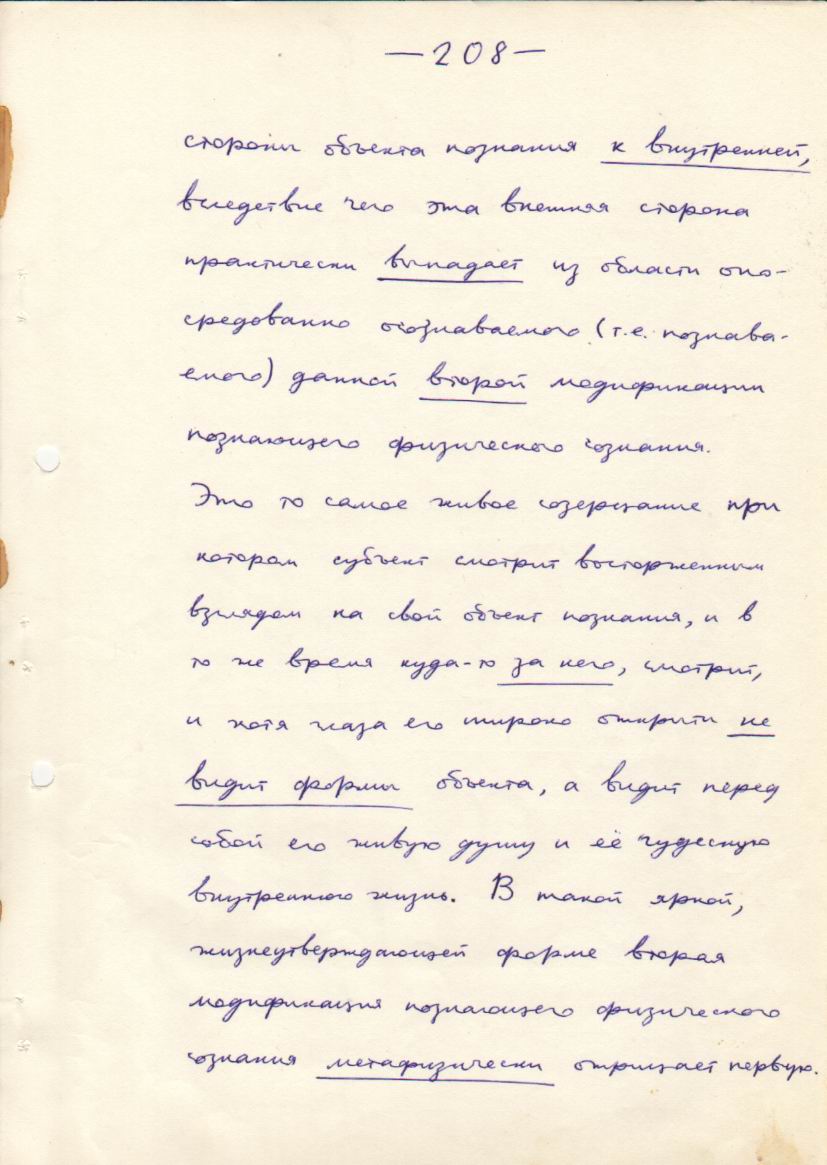 —208—
стороны объекта познания к внутренней,
вследствие чего эта внешняя сторона
практически выпадает из области опо-
средованно осознаваемого (т.е. познава-
емого) данной второй модификации
познающего физического сознания.
Это то самое живое созерцание при
котором субъект смотрит восторженным
взглядом на свой объект познания, и в
то же время куда-то за него, смотрит,
и хотя глаза его широко открыты не
видит формы объекта, а видит перед
собой его живую душу и её чудесную
внутреннюю жизнь. В такой яркой,
жизнеутверждающей форме вторая
модификация познающего физического
сознания метафизически отрицает первую.